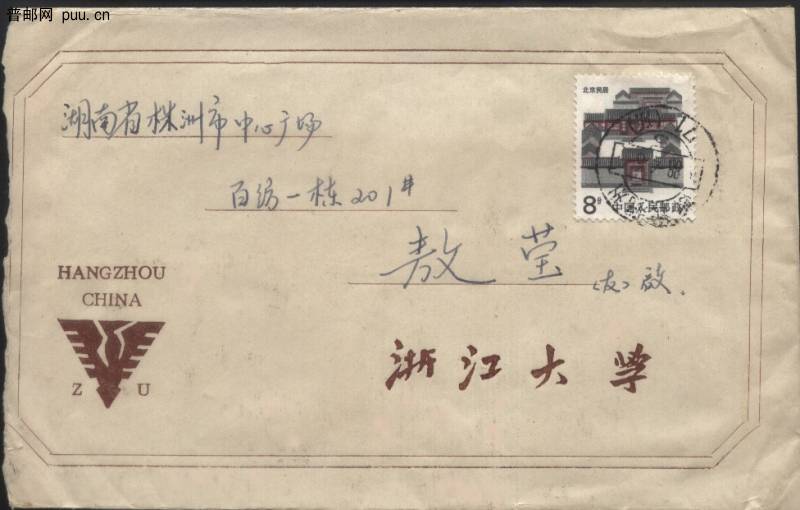 普邮网 puu.cn
湖南省株洲市中心广场
百纺一栋201#
敖莹
(友)启.
北京民居
8分
中国人民邮政
HANGZHOU
CHINA
Z U
浙江大学